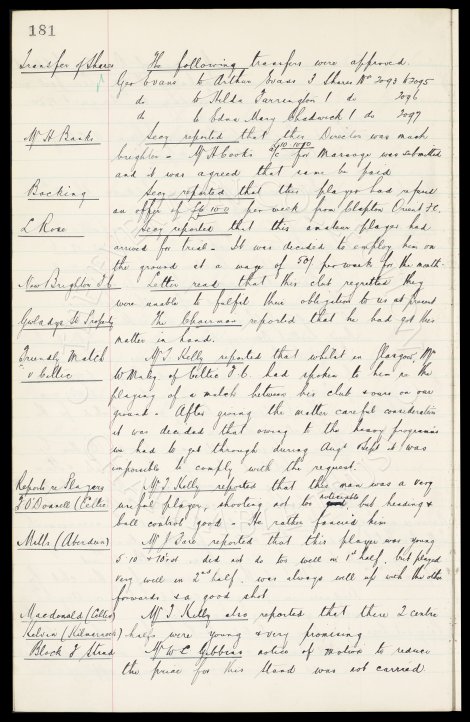 181
Transfer of Shares The following transfers were approved.
Geo Evans to Arthur Evans 3 Shares Nos 7093 to 7095
do to Hilda Farrington 1 do 7096
do to Edna Mary Chadwick 1 do 7097
Mr H Banks Secy reported that this Director was much
brighter - Mr H Cooks a/c for Massage was submitted
and it was agreed that same be paid
Bocking Secy reported that this player had refused
an offer of £4-10-0 per week from Clapton Orient F.C.
L Rose Secy reported that this amateur player had
arrived for trial - It was decided to employ him on
the ground at a wage of 50/- per week for the month.
New Brighton F.C. Letter read that this club regretted they
were unable to fulfil their obligation to us at present
Gwladys St Property The Chairman reported that he had got this
matter in hand.
Friendly Match Mr J Kelly reported that whilst in Glasgow, Mr
v Celtic W Maley of Celtic F.C. had spoken to him re the
playing of a match between his club & ours on our
ground - After giving the matter careful consideration
it was decided that owing to the heavy programme
we had to get through during Augt & Sept it was
impossible to comply with the request.
Reports re Players Mr J Kelly reported that this man was a very
F O'Donnell (Celtic) useful player, shooting not too noticeable but heading &
ball control good - He rather fancied him
Mills (Aberdeen) Mr J Sare reported that this player was young
5-10 & did not do too well in 1st half, but played
very well in 2nd half. was always well up with the other
forwards & a good shot
Macdonald (Celtic) Mr J Kelly also reported that these 2 centre
Kelvin (Kilmarnock) half were young & very promising
Block J Stand Mr W C Gibbins notice of motion to reduce
the price for this stand was not carried